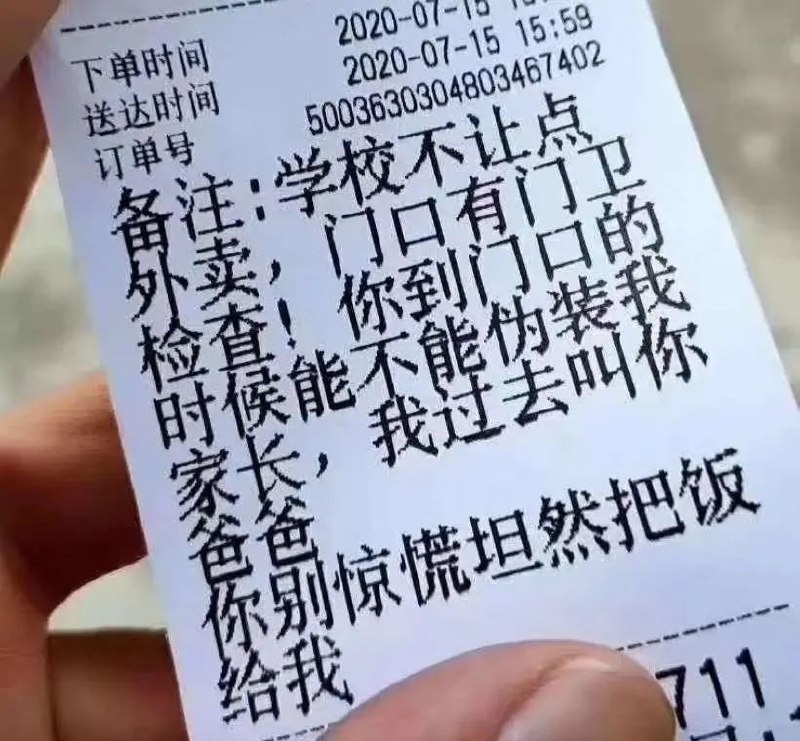 下单时间 2020-07-15
送达时间 2020-07-15 15:59
订单号 5003630304803467402
备注:学校不让点
外卖，门口有门卫
检查！你到门口的
时候能不能伪装我
家长，我过去叫你
爸爸
你别惊慌坦然把饭
给我
711